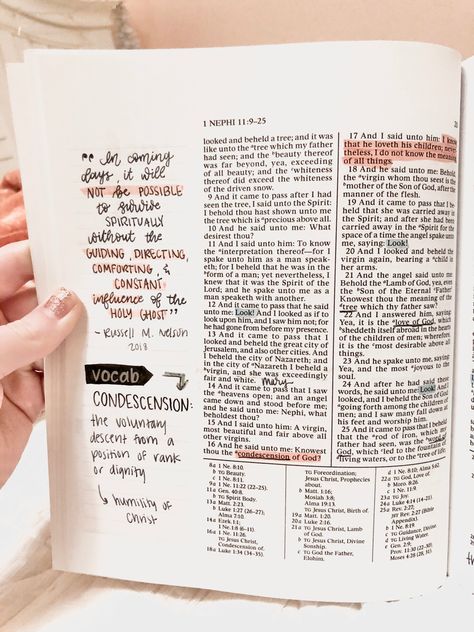 1 NEPHI 11:9–25
"In coming
days, it will
NOT be POSSIBLE
to survive
SPIRITUALLY
without the
GUIDING, DIRECTING,
COMFORTING, &
CONSTANT
influence of the
HOLY GHOST"
- RUSSELL M. Nelson
2018
VOCAB
CONDESCENSION:
the voluntary
descent from a
position of rank
or dignity
↳ humility of
Christ
looked and beheld a tree; and it was
like unto the tree which my father
had seen; and the beauty thereof
was far beyond, yea, exceeding
of all beauty; and the whiteness
thereof did exceed the whiteness
of the driven snow.
9 And it came to pass after I had
seen the tree, I said unto the Spirit:
I behold thou hast shown unto me
the tree which is precious above all.
10 And he said unto me: What
desirest thou?
11 And I said unto him: To know
the interpretation thereof—for I
spake unto him as a man speak-
eth; for I beheld that he was in the
form of a man; yet nevertheless, I
knew that it was the Spirit of the
Lord; and he spake unto me as a
man speaketh with another.
12 And it came to pass that he said
unto me: Look! And I looked as if to
look upon him, and I saw him not; for
he had gone from before my presence.
13 And it came to pass that I
looked and beheld the great city of
Jerusalem, and also other cities. And
I beheld the city of Nazareth; and
in the city of Nazareth I beheld a
virgin, and she was exceedingly
fair and white. mary
14 And it came to pass that I saw
the heavens open; and an angel
came down and stood before me;
and he said unto me: Nephi, what
beholdest thou?
15 And I said unto him: A virgin,
most beautiful and fair above all
other virgins.
16 And he said unto me: Knowest
thou the condescension of God?
17 And I said unto him: I know
that he loveth his children; never-
theless, I do not know the meaning
of all things.
18 And he said unto me: Behold,
the virgin whom thou seest is the
mother of the Son of God, after the
manner of the flesh.
19 And it came to pass that I be-
held that she was carried away in
the Spirit; and after she had been
carried away in the Spirit for the
space of a time the angel spake unto
me, saying: Look!
20 And I looked and beheld the
virgin again, bearing a child in
her arms.
21 And the angel said unto me:
Behold the Lamb of God, yea, even
the Son of the Eternal Father!
Knowest thou the meaning of the
tree which thy father saw?
22 And I answered him, saying:
Yea, it is the love of God, which
sheddeth itself abroad in the hearts
of the children of men; wherefore,
it is the most desirable above all
things.
23 And he spake unto me, saying:
Yea, and the most joyous to the
soul.
24 And after he had said these
words, he said unto me: Look! And I
looked, and I beheld the Son of God
going forth among the children of
men; and I saw many fall down at
his feet and worship him.
25 And it came to pass that I beheld
that the rod of iron, which my
father had seen, was the word of
God, which led to the fountain of
living waters, or to the tree of life;
8a 1 Ne. 8:10.
b TG Beauty.
c 1 Ne. 8:11.
9a 1 Ne. 11:22 (22–25).
11a Gen. 40:8.
b TG Spirit Body.
13a Matt. 2:23.
b Luke 1:27 (26–27);
Alma 7:10.
14a Ezek. 1:1;
1 Ne. 1:8 (6–11).
16a 1 Ne. 11:26.
TG Jesus Christ,
Condescension of.
18a Luke 1:34 (34–35).
TG Foreordination;
Jesus Christ, Prophecies
about.
b Matt. 1:16;
Mosiah 3:8;
Alma 19:13.
TG Jesus Christ, Birth of.
19a Matt. 1:20.
20a Luke 2:16.
21a TG Jesus Christ, Lamb
of God.
b TG Jesus Christ, Divine
Sonship.
c TG God the Father,
Elohim.
d 1 Ne. 8:10; Alma 5:62.
22a TG God, Love of.
b Moro. 8:26.
c 1 Ne. 11:9.
23a TG Joy.
24a Luke 4:14 (14–21).
25a Rev. 2:27;
JST Rev. 2:27 (Bible
Appendix).
b 1 Ne. 8:19.
c TG Guidance, Divine.
d TG Living Water.
e Gen. 2:9;
Prov. 11:30 (22–30);
Moses 4:28 (28, 31).